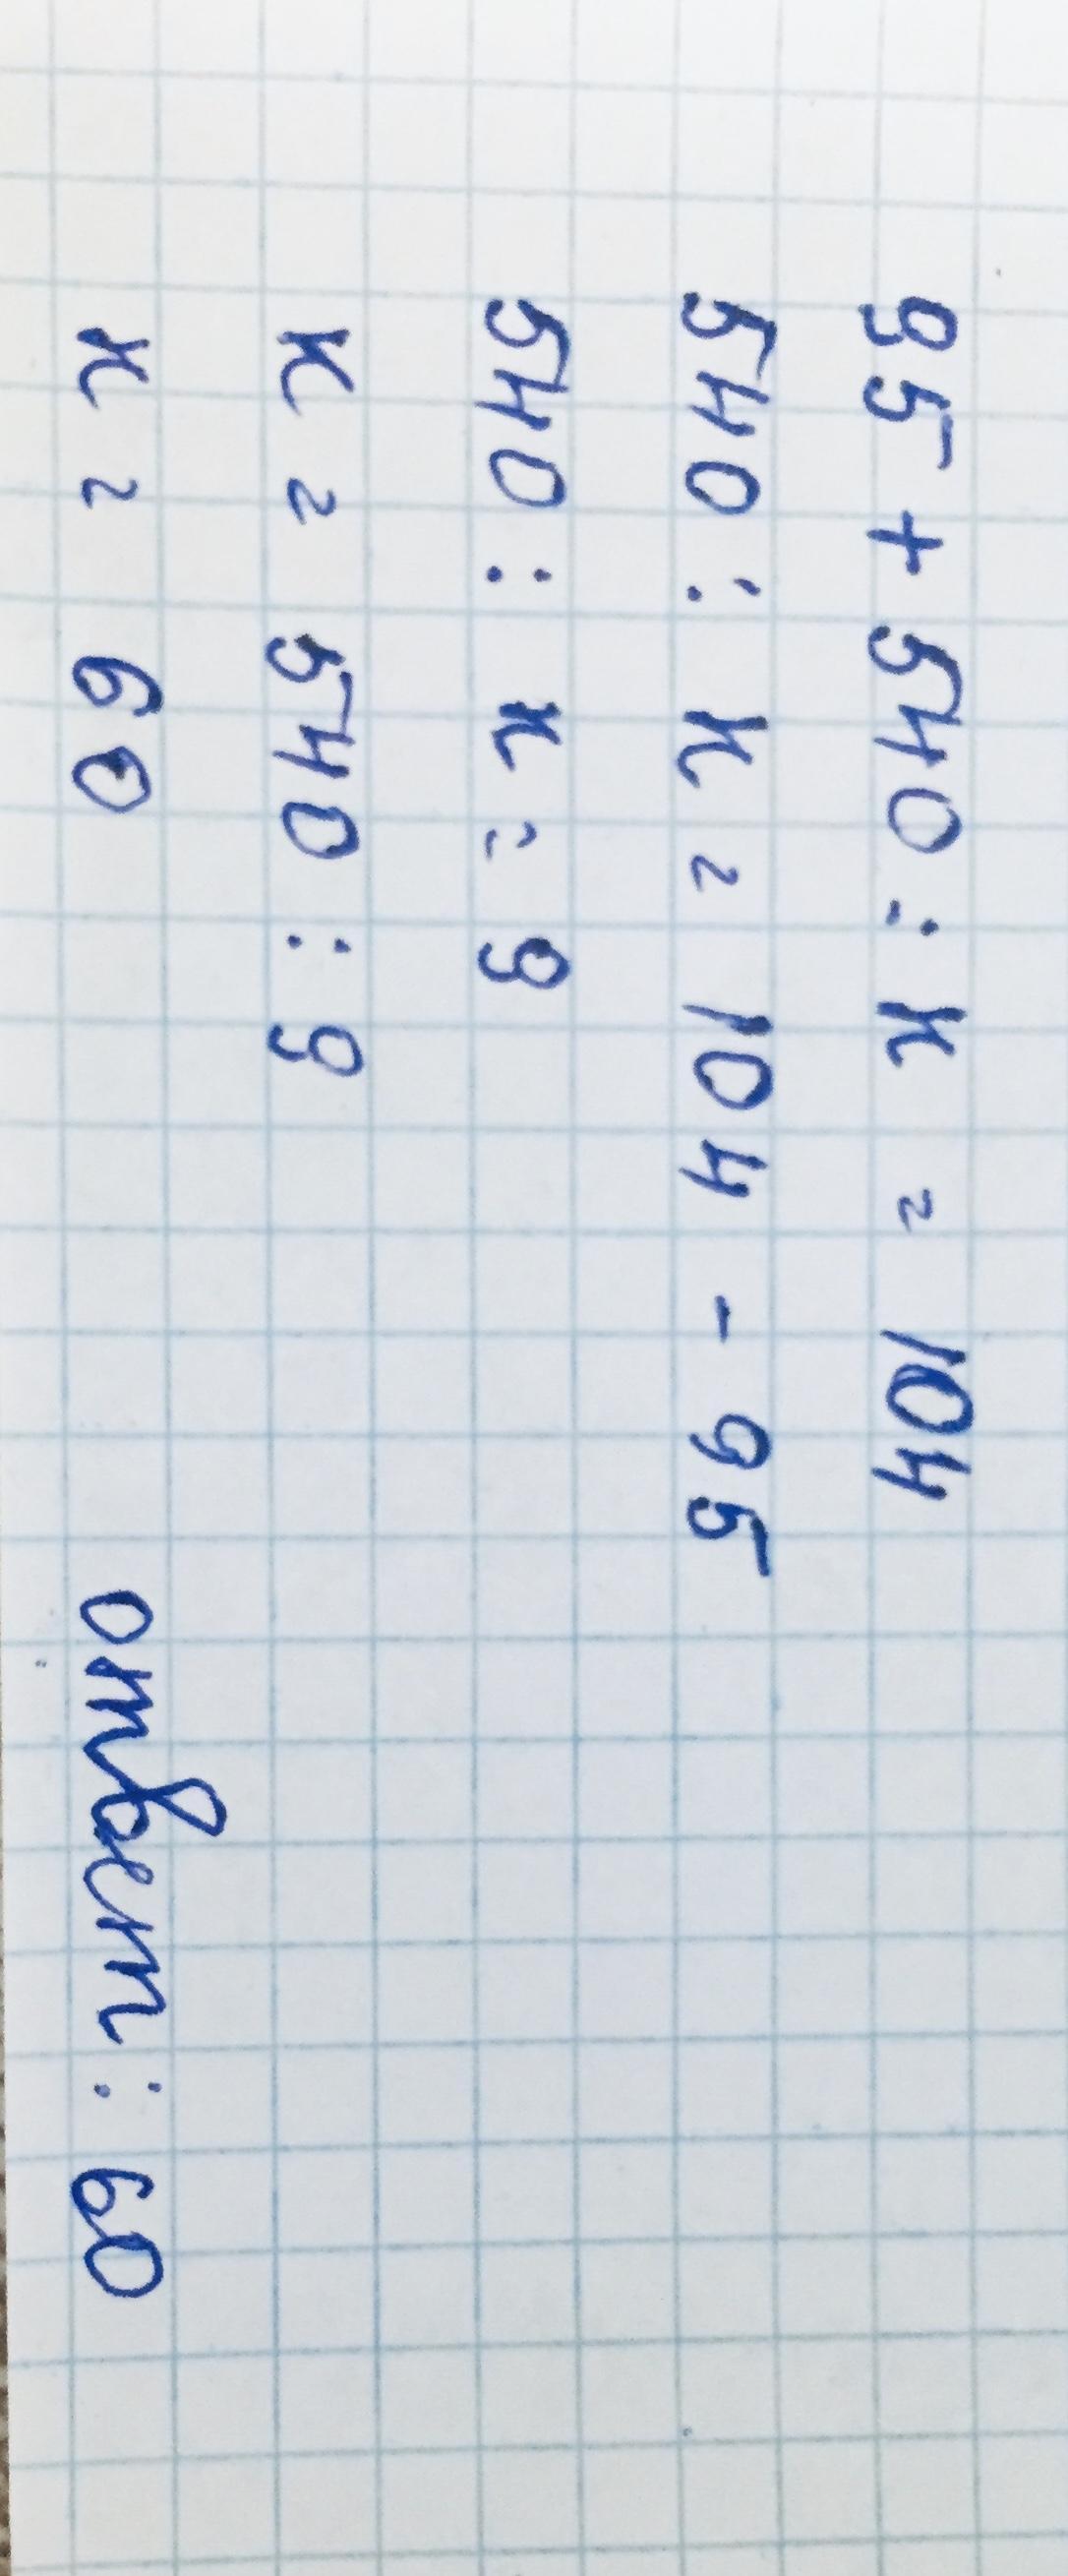 95 + 540 : к = 104
540 : к = 104 - 95
540 : к = 9
к = 540 : 9
к = 60 ответ : 60